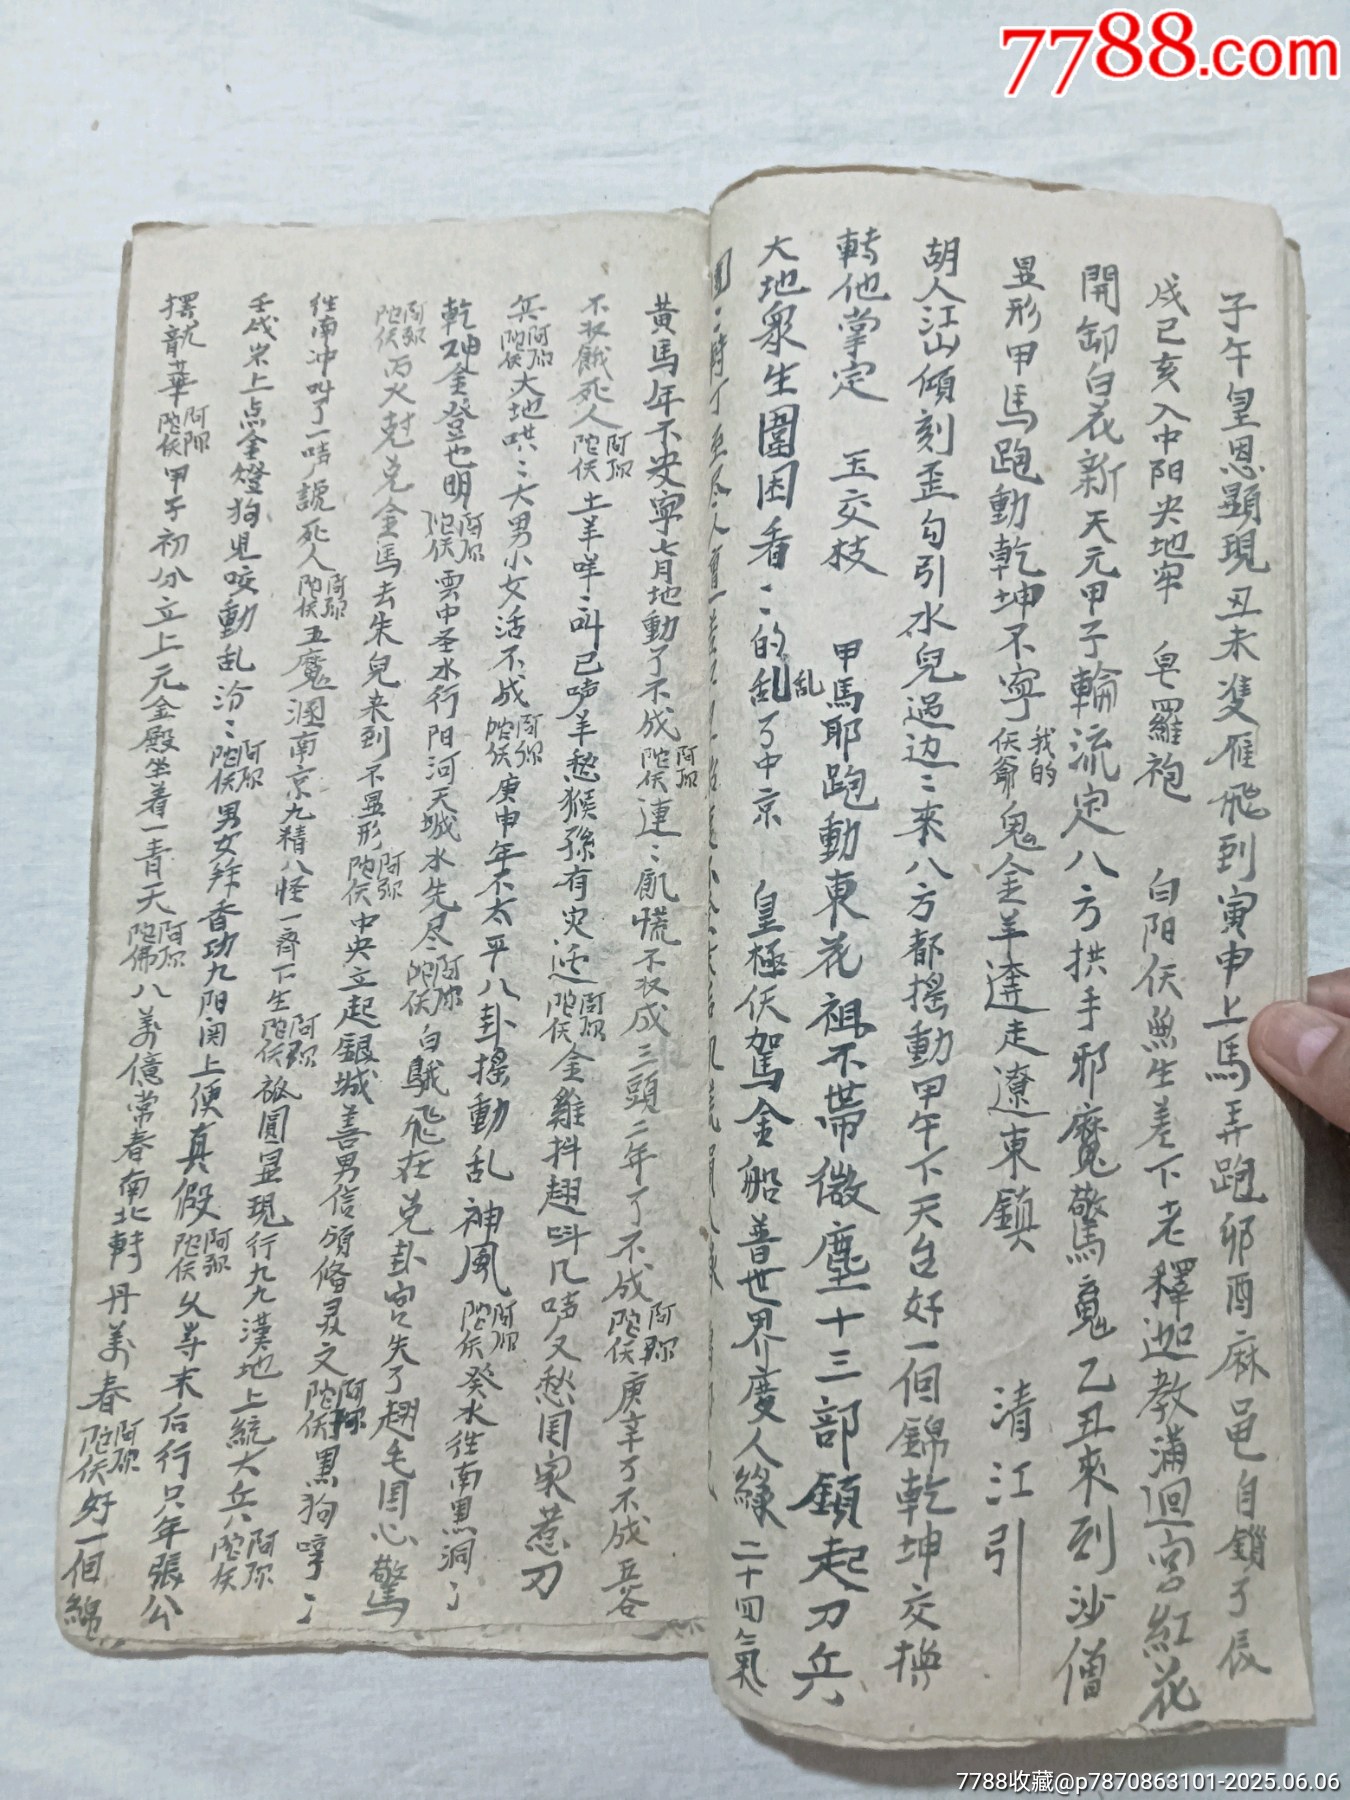 7788.com
子午皇恩顯現丑未隻雁飛到寅申上馬弄跑卯酉麻邑自鎖了辰
戌巳亥入中阳央地牢 皂羅袍 白阳伕無生差下老釋迦教滿迴宮紅花
開卸白花新天元甲子輪流定八方拱手邪魔驚鬼乙丑來到沙僧
显形甲馬跑動乾坤不寧我的伕爺鬼金羊遊走遼東鎮 清江引
胡人江山傾刻歪勾引水兒過边〻來八方都搖動甲午下天台好一個錦乾坤交換
轉他掌定 玉交枝 甲馬耶跑動東花祖不帶微塵十三部鎖起刀兵
大地衆生圍困看〻的乱乱了中京 皇極伕駕金船普世界度人緣二十四氣
黄馬年不安寧七月地動了不成阿弥陀伕連〻飢慌不収成三頭二年了不成阿弥陀伕庚辛了不成五谷
不収餓死人阿弥陀伕土羊咩〻叫巳唛羊愁猴孫有灾迍阿弥陀伕金雞抖翅呌几唛又愁国家惹刀
兵阿弥陀伕大地哄〻大男小女活不成阿弥陀伕庚申年不太平八卦搖動乱神風阿弥陀伕癸水徃南黑洞〻
乾坤金登也明阿弥陀伕雲中圣水行阳河天城水先尽阿弥陀伕白鵝飛在兑卦宮失了翅毛国心驚
阿弥陀伕丙火尅兑金馬去朱兒来到不显形阿弥陀伕中央立起銀城善男信頒脩灵文阿弥陀伕黑狗哼〻
徃南冲叫了一唛諕死人阿弥陀伕五魔溷南京九精八怪一齊下生阿弥陀伕極圓显現行九九漢地上統大兵阿弥陀伕
壬戌米上点金燈狗見咬動乱汾〻阿弥陀伕男女拜香功九阳関上便真假阿弥陀伕乆等末后行只年張公
擺龍華阿弥陀伕甲子初分立上元金殿坐着一青天阿弥陀佛八萬億常春南北轉丹萬春阿弥陀伕好一個綿
7788收藏@p7870863101-2025.06.06